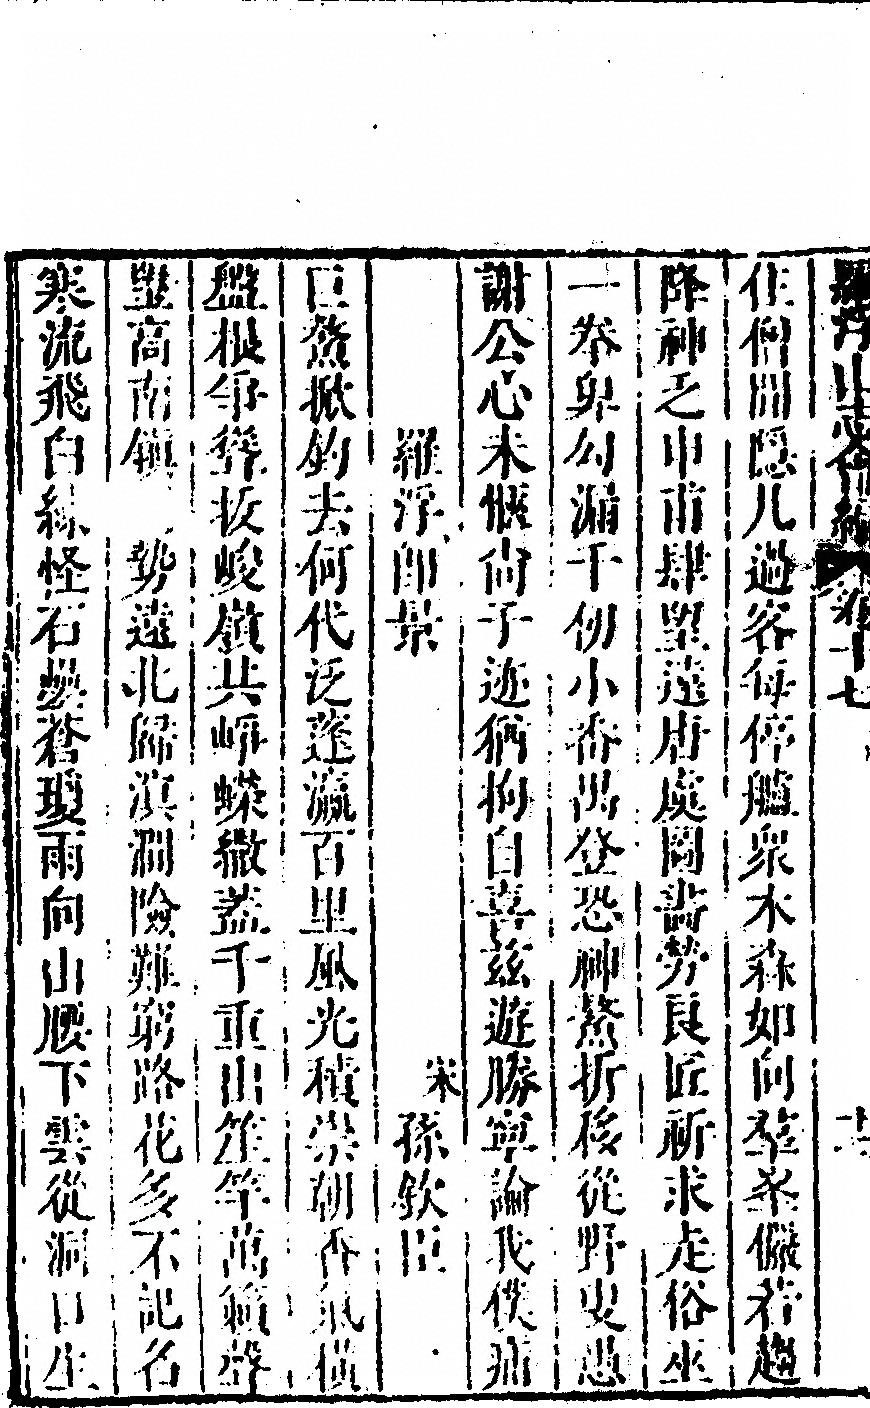 羅浮山志會編 卷十七 十二
住僧閒隱几過客每停艫衆木森如向羣峯儼若趨
降神乏申甫肆望遠唐虞圖畵勞良匠祈求走俗巫
一拳卑勾漏千仞小番禺登恐神鰲折移從野叟愚
謝公心未愜尚子迹猶拘自喜兹遊勝寧論我僕痡
羅浮即景
宋 孫欽臣
巨鰲掀釣去何代泛蓬瀛百里風光積崇朝香氣橫
盤根爭聳拔峻嶺共崢嶸繖葢千重出笙竽萬籟聲
望高南鎮 勢遠北歸滇澗險難窮路花多不記名
寒流飛白練怪石疊蒼瓊雨向山腰下雲從洞口生